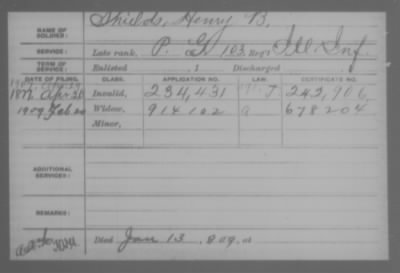 NAME OF SOLDIER: Shields, Henry B.
SERVICE: Late rank, P. G. 103 Reg't Ill Inf.
TERM OF SERVICE: Enlisted , 1 Discharged , 1
DATE OF FILING. CLASS. APPLICATION NO. LAW. CERTIFICATE NO.
1877 Apr 30 Invalid, 234,431 J 242,906
1909 Feb Widow, 914102 678204
Minor,
ADDITIONAL SERVICES:
REMARKS:
Died Jan 13, 909, at